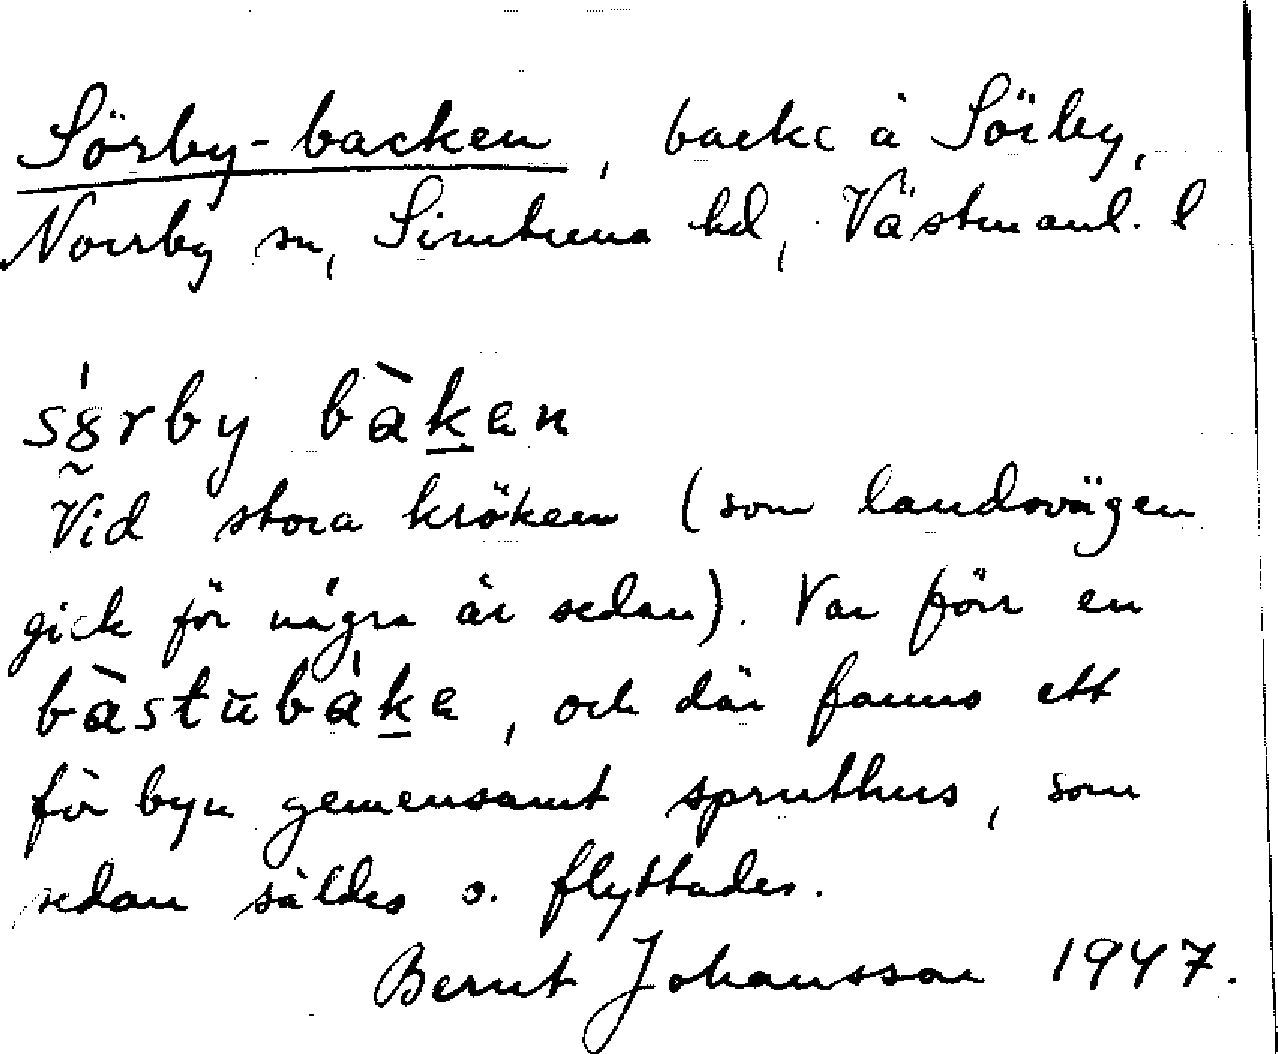 Sörby-backen, backe å Sörby,
Norrby sn, Simtuna hd, Västmanl. l
sörby bàken
Vid stora kröken (som landsvägen
gick för några år sedan). Var förr en
bàstu̅báke, och där fanns ett
för byn gemensamt spruthus, som
sedan såldes o. flyttades.
Bernt Johansson 1947.